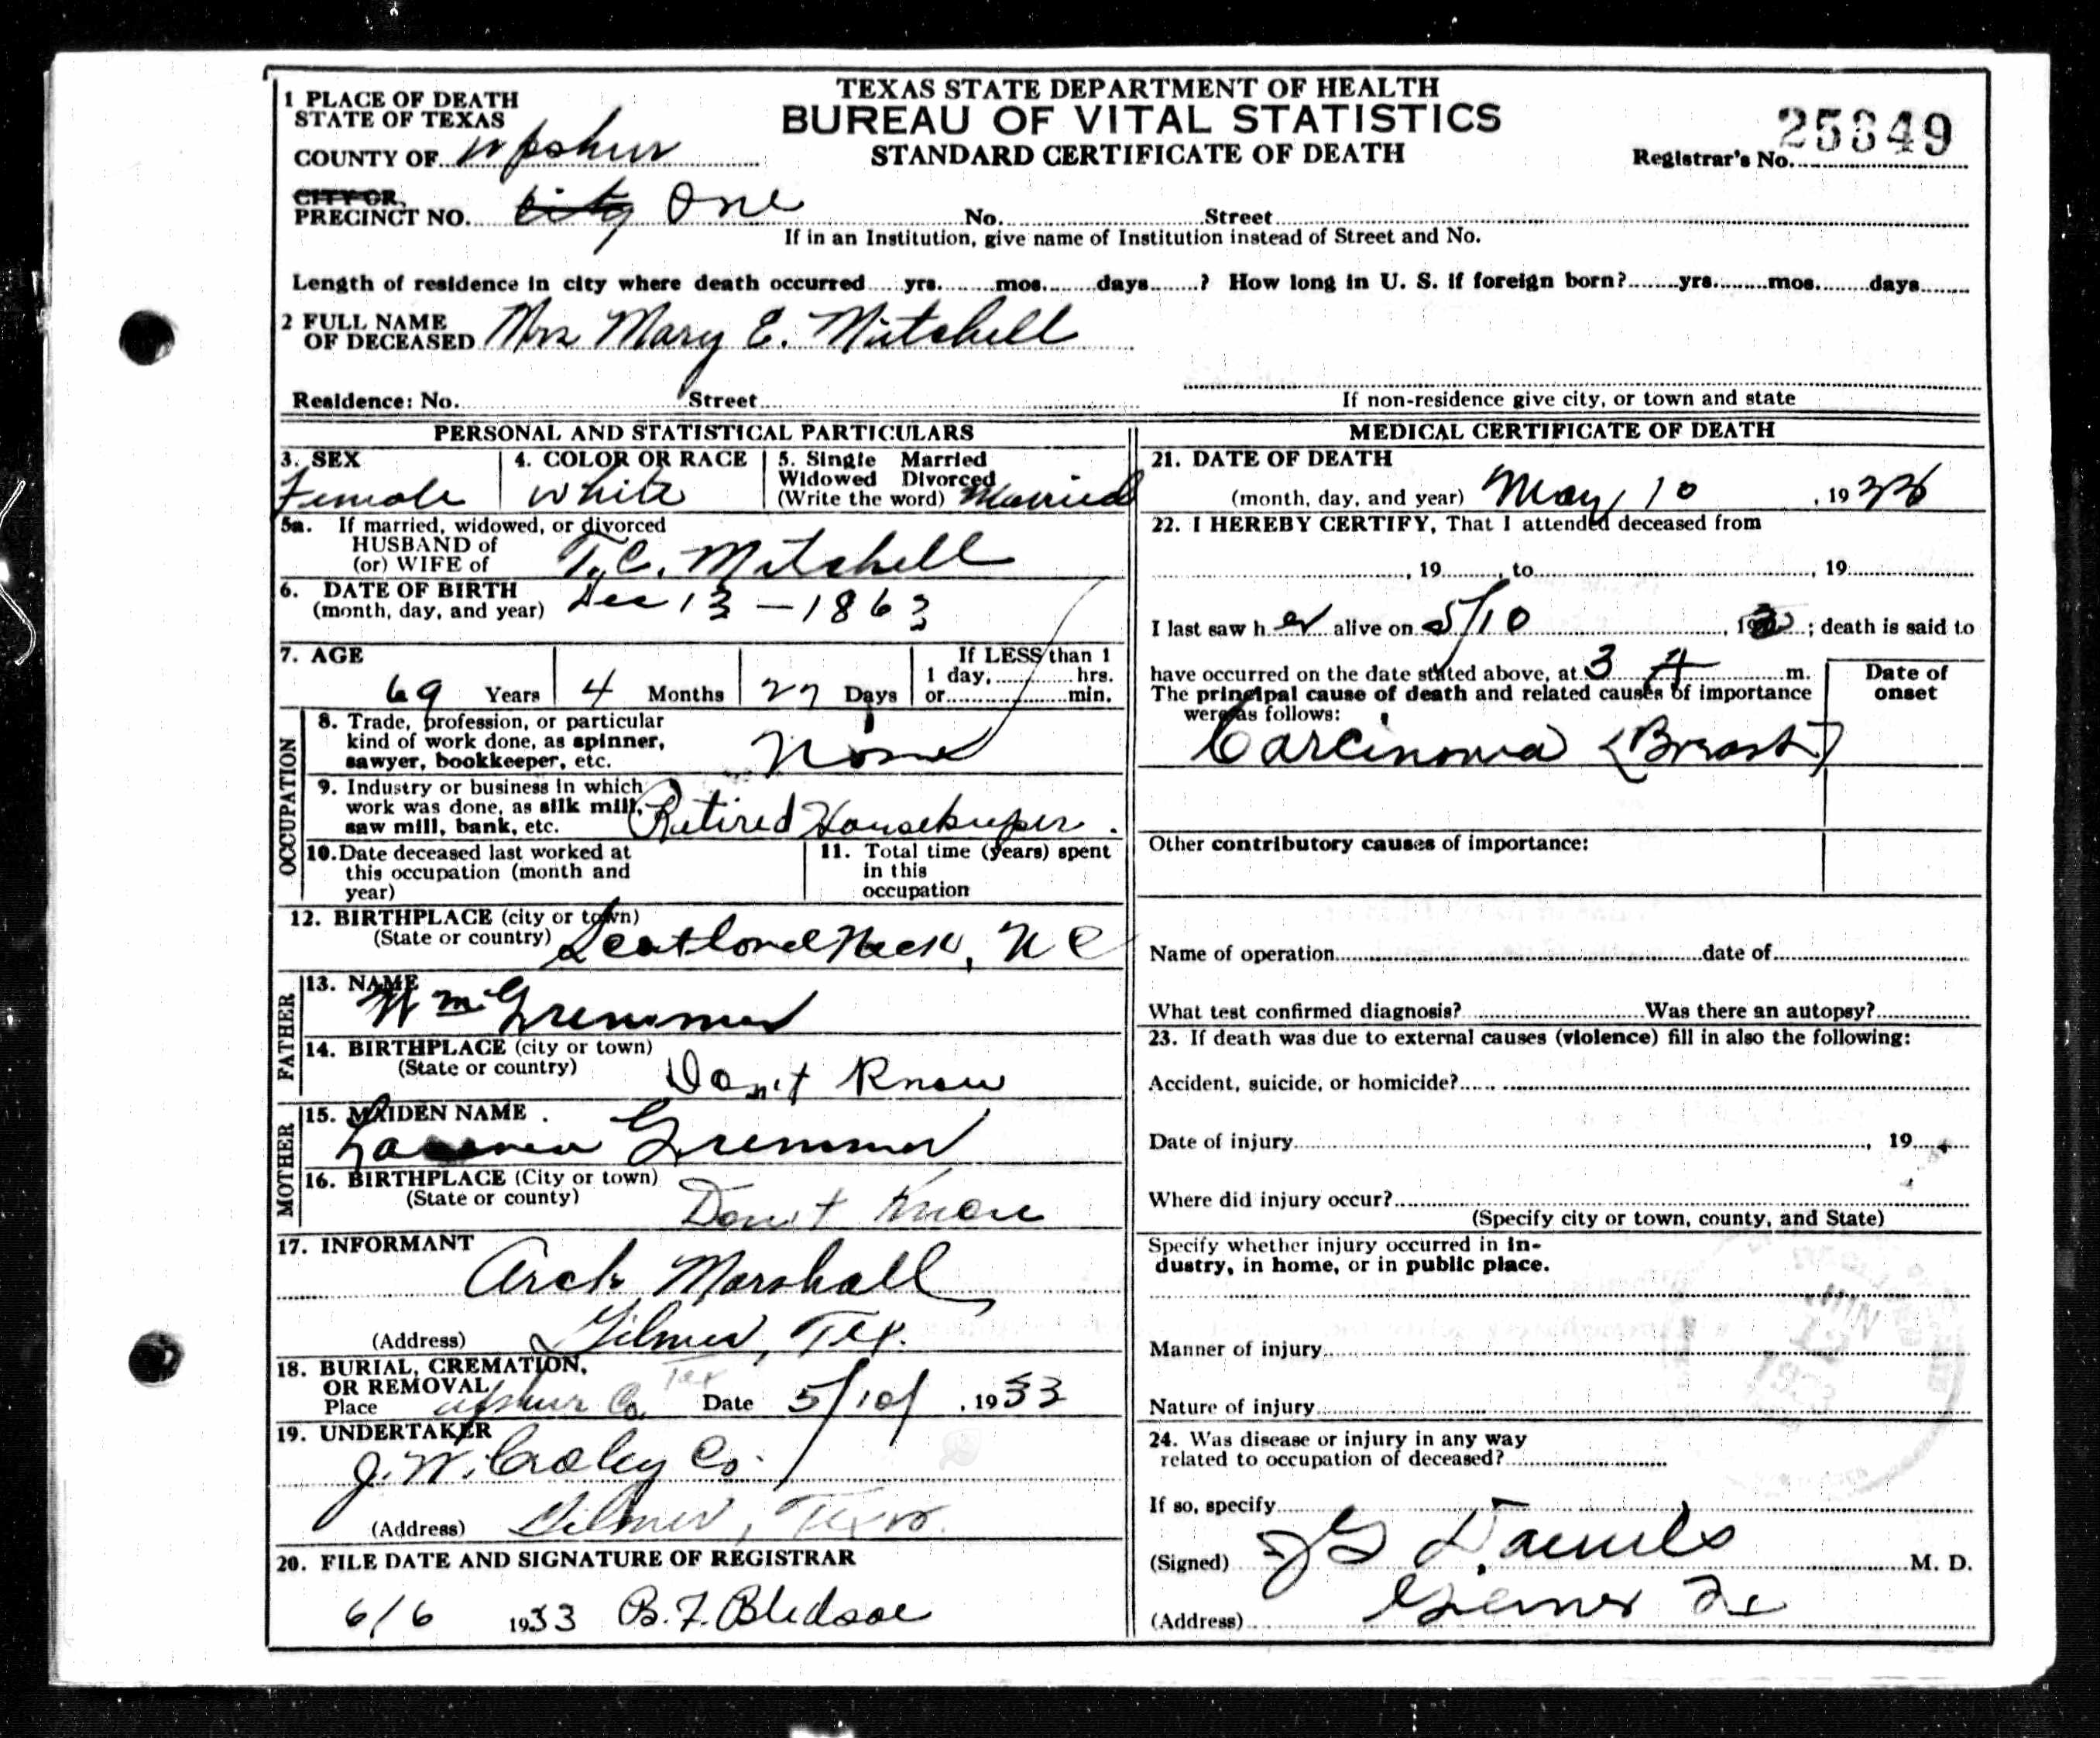 TEXAS STATE DEPARTMENT OF HEALTH
BUREAU OF VITAL STATISTICS
STANDARD CERTIFICATE OF DEATH
Registrar's No.
1 PLACE OF DEATH
STATE OF TEXAS
COUNTY OF Upshur
CITY OR,
PRECINCT NO. City One No. Street
If in an Institution, give name of Institution instead of Street and No.
Length of residence in city where death occurred yrs. mos. days ? How long in U. S. if foreign born? yrs. mos. days
2 FULL NAME
OF DECEASED Mrs Mary E. Mitchell
Residence: No. Street
If non-residence give city, or town and state
PERSONAL AND STATISTICAL PARTICULARS
3. SEX
Female
4. COLOR OR RACE
White
5. Single Married
Widowed Divorced
(Write the word) Married
5a. If married, widowed, or divorced
HUSBAND of
(or) WIFE of T.C. Mitchell
6. DATE OF BIRTH
(month, day, and year) Dec 13 - 1863
7. AGE
69 Years 4 Months 27 Days
If LESS than 1
1 day, hrs.
or min.
OCCUPATION
8. Trade, profession, or particular
kind of work done, as spinner,
sawyer, bookkeeper, etc. None
9. Industry or business in which
work was done, as silk mill,
saw mill, bank, etc. Retired Housekeeper.
10. Date deceased last worked at
this occupation (month and
year)
11. Total time (years) spent
in this
occupation
12. BIRTHPLACE (city or town)
(State or country) Neck, N C
FATHER
13. NAME
Wm Gremmer
14. BIRTHPLACE (city or town)
(State or country) Don't Know
MOTHER
15. MAIDEN NAME .
Gremmer
16. BIRTHPLACE (City or town)
(State or county) Don't Know
17. INFORMANT
Arch Marshall
(Address) Gilmer, Tex.
18. BURIAL, CREMATION,
OR REMOVAL Tex
Place Upshur Co Date 5/10/, 1933
19. UNDERTAKER
J. W. Croley Co.
(Address) Gilmer, Texas.
20. FILE DATE AND SIGNATURE OF REGISTRAR
6/6 1933 B. F. Bledsoe
MEDICAL CERTIFICATE OF DEATH
21. DATE OF DEATH
(month, day, and year) May 10, 1933
22. I HEREBY CERTIFY, That I attended deceased from
, 19 , to , 19
I last saw her alive on 5/10 , 19 ; death is said to
have occurred on the date stated above, at 3 A m.
The principal cause of death and related causes of importance
were as follows:
Date of
onset
Carcinoma (Breast)
Other contributory causes of importance:
Name of operation date of
What test confirmed diagnosis? Was there an autopsy?
23. If death was due to external causes (violence) fill in also the following:
Accident, suicide, or homicide?
Date of injury , 19
Where did injury occur?
(Specify city or town, county, and State)
Specify whether injury occurred in in-
dustry, in home, or in public place.
Manner of injury
Nature of injury
24. Was disease or injury in any way
related to occupation of deceased?
If so, specify
(Signed) Daniels M. D.
(Address) Gilmer